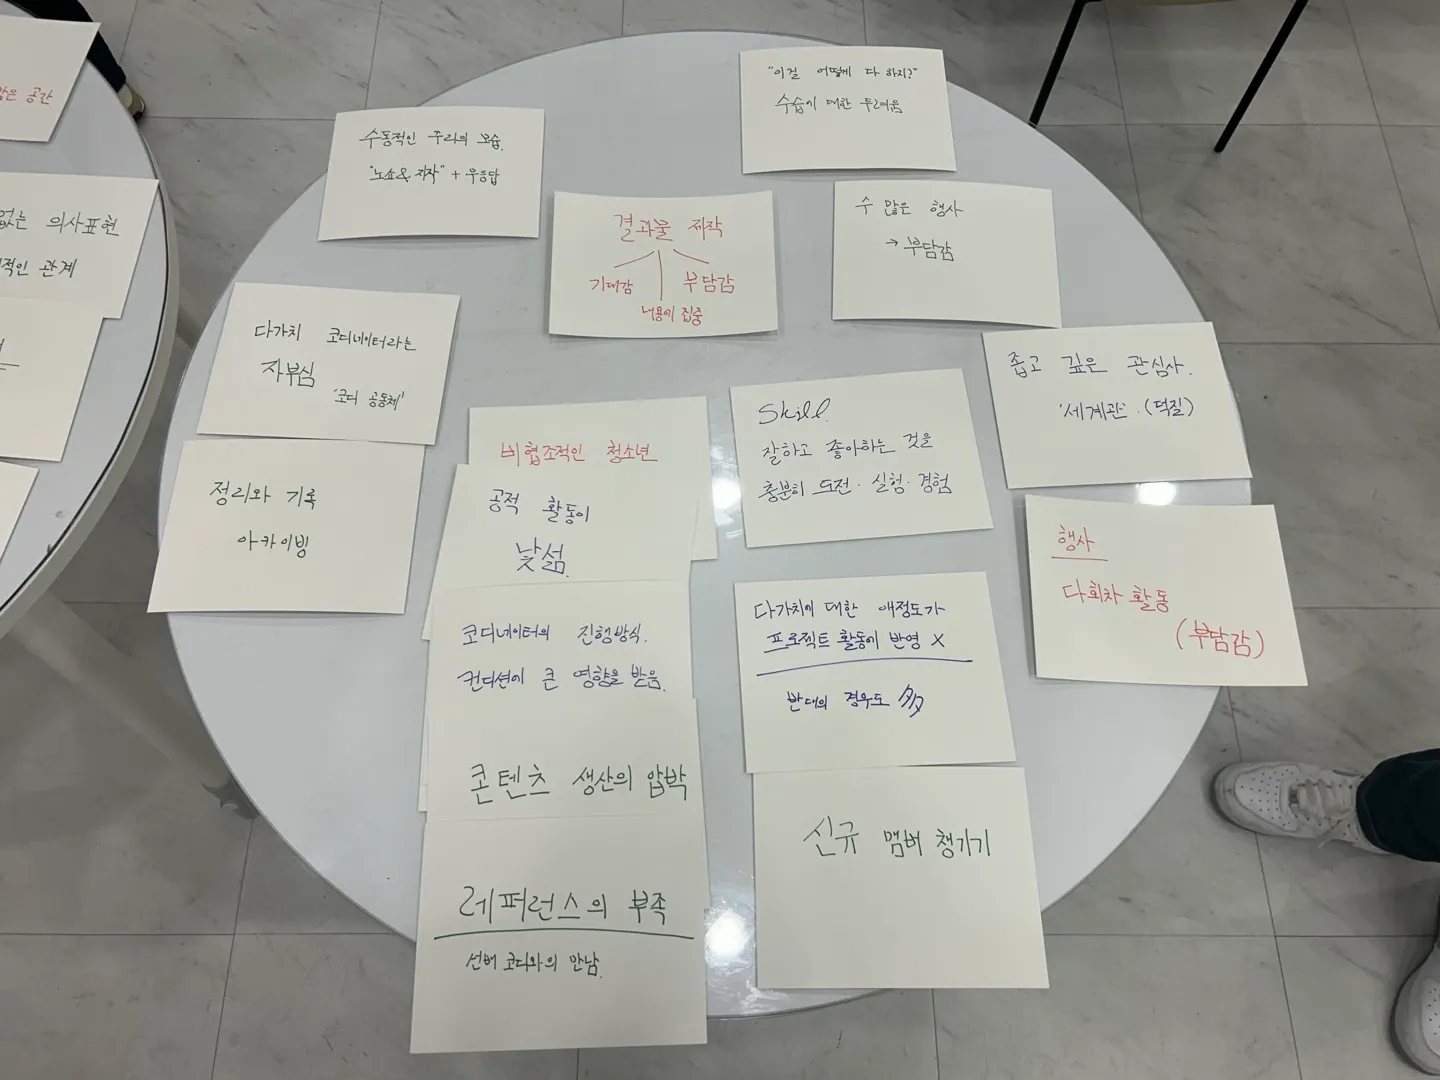 은 공간
없는 의사표현
적인 관계
수동적인 우리의 모습.
"노쇼& 지각" + 무응답
"이걸 어떻게 다 하지?"
수습에 대한 두려움
결과물 제작
기대감
내용에 집중
부담감
수 많은 행사
→ 부담감
다가치 코디네이터라는
자부심
'코디 공동체'
좁고 깊은 관심사.
'세계관'. (덕질)
Skill.
잘하고 좋아하는 것을
충분히 도전·실험·경험
비협조적인 청소년
공적 활동이
낯섦.
정리와 기록
아카이빙
행사
다회차 활동
(부담감)
코디네이터의 진행방식.
컨디션에 큰 영향을 받음.
다가치에 대한 애정도가
프로젝트 활동에 반영 X
반대의 경우도 多
콘텐츠 생산의 압박
신규 멤버 챙기기
레퍼런스의 부족
선배 코디와의 만남.